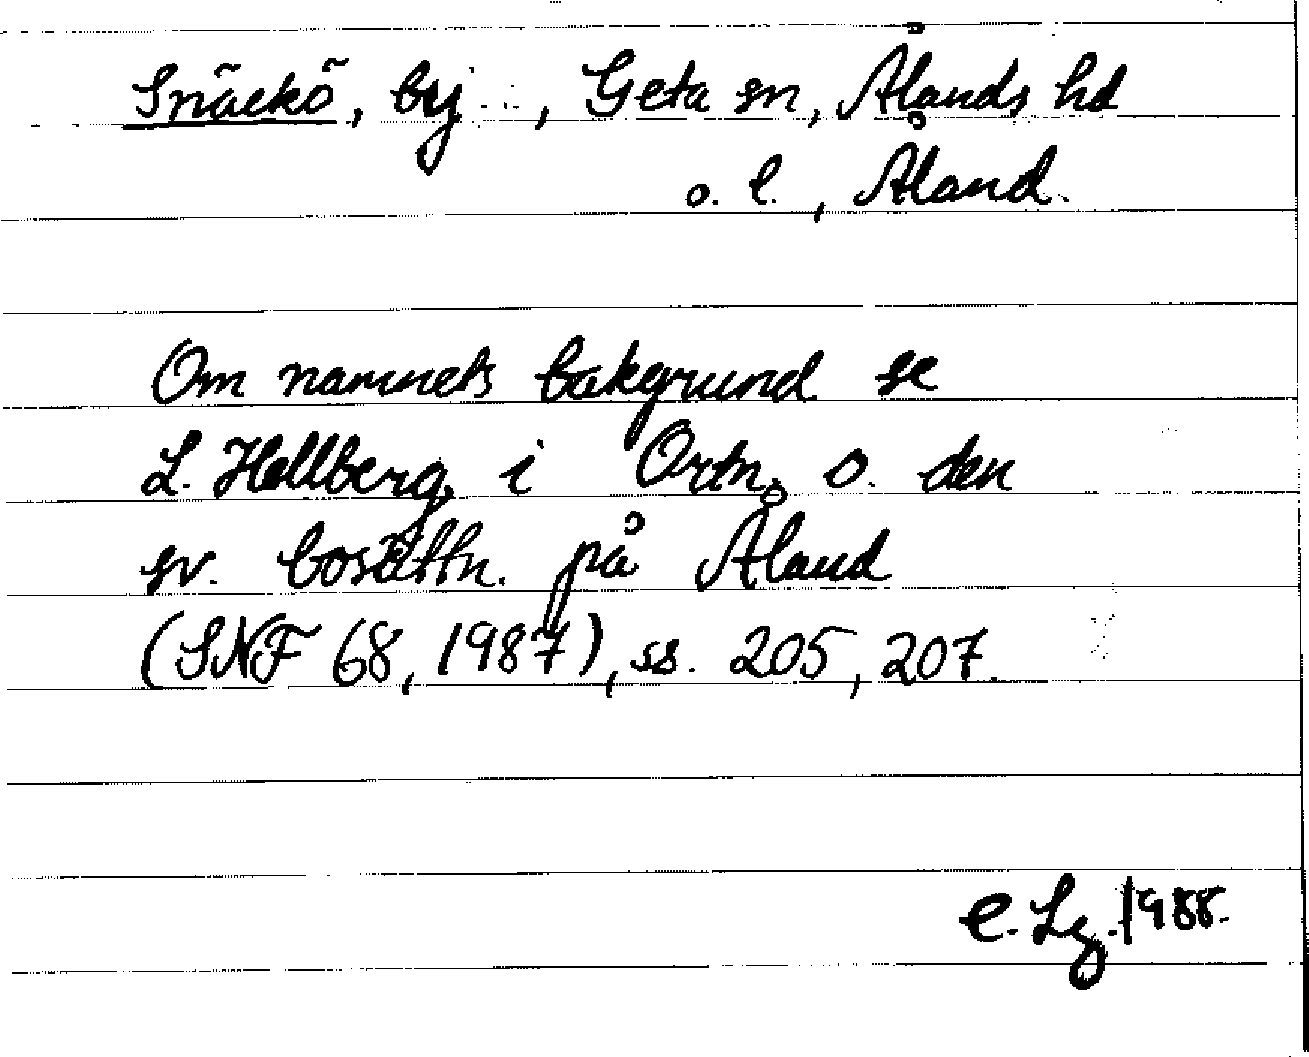 Snäckö, by, Geta sn, Ålands hd
o. l., Åland.
Om namnets bakgrund se
L. Hellberg, i Ortn. o. den
sv. bosättn. på Åland
(SNF 68, 1987), ss. 205, 207.
e. Lg. 1988.